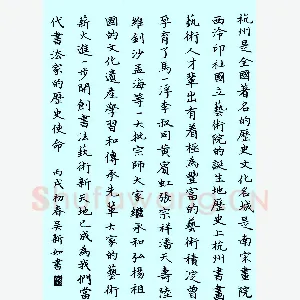 杭州是全國著名的歷史文化名城是南宋畫院
西泠印社國立藝術院的誕生地歷史上杭州書畫
藝術人才輩出有着極為豐富的藝術積淀曾
孕育了馬一浮李叔同黃賓虹張宗祥潘天壽陸
維釗沙孟海等一大批宗師大家繼承和弘楊祖
國的文化遺產學習和傳承先輩大家的藝術
薪火進一步開創書法藝術新天地已成為我們當
代書法家的歷史使命
丙戌初春吳新如書